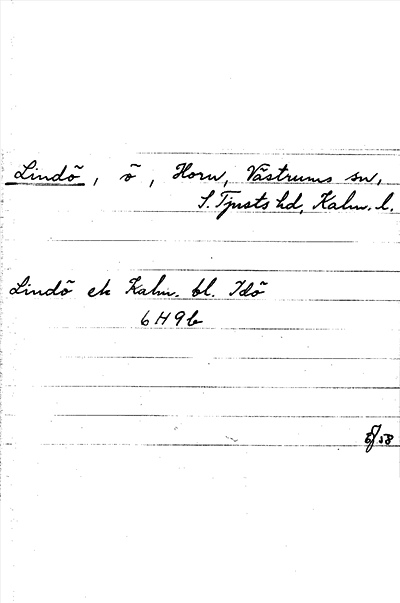 Lindö, ö, Horn, Västrums sn,
S. Tjusts hd, Kalm. l.
Lindö ek Kalm. bl. Idö
6H9b
58